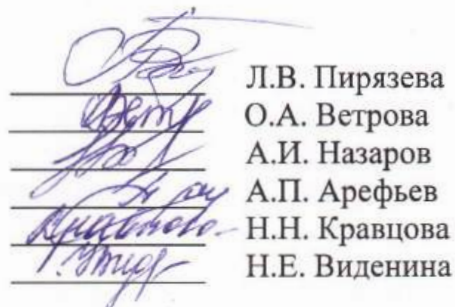 Л.В. Пирязева
О.А. Ветрова
А.И. Назаров
А.П. Арефьев
Н.Н. Кравцова
Н.Е. Виденина